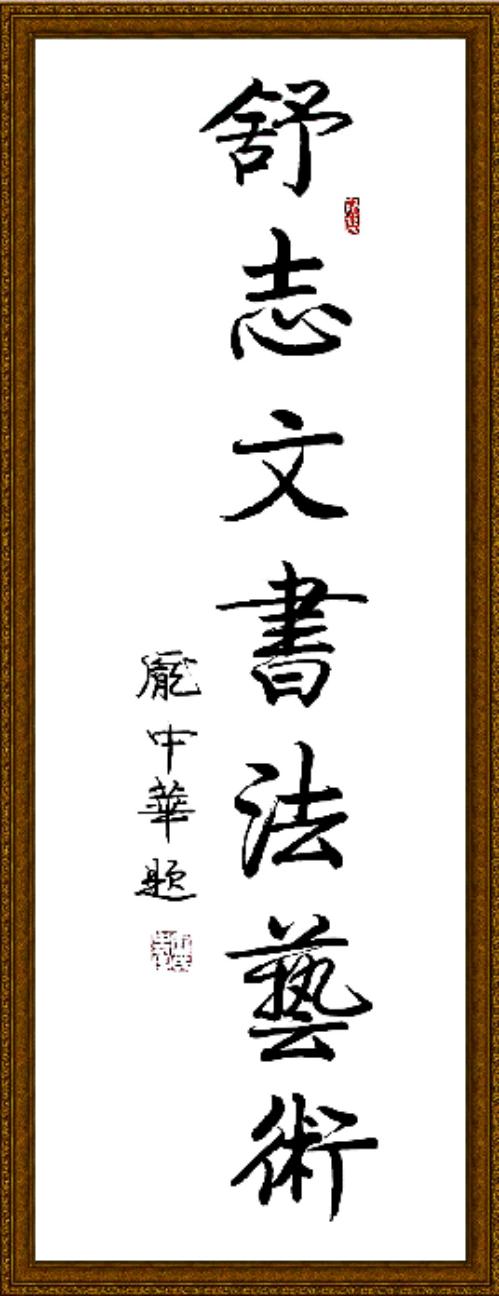 舒志文書法藝術
龐中華題